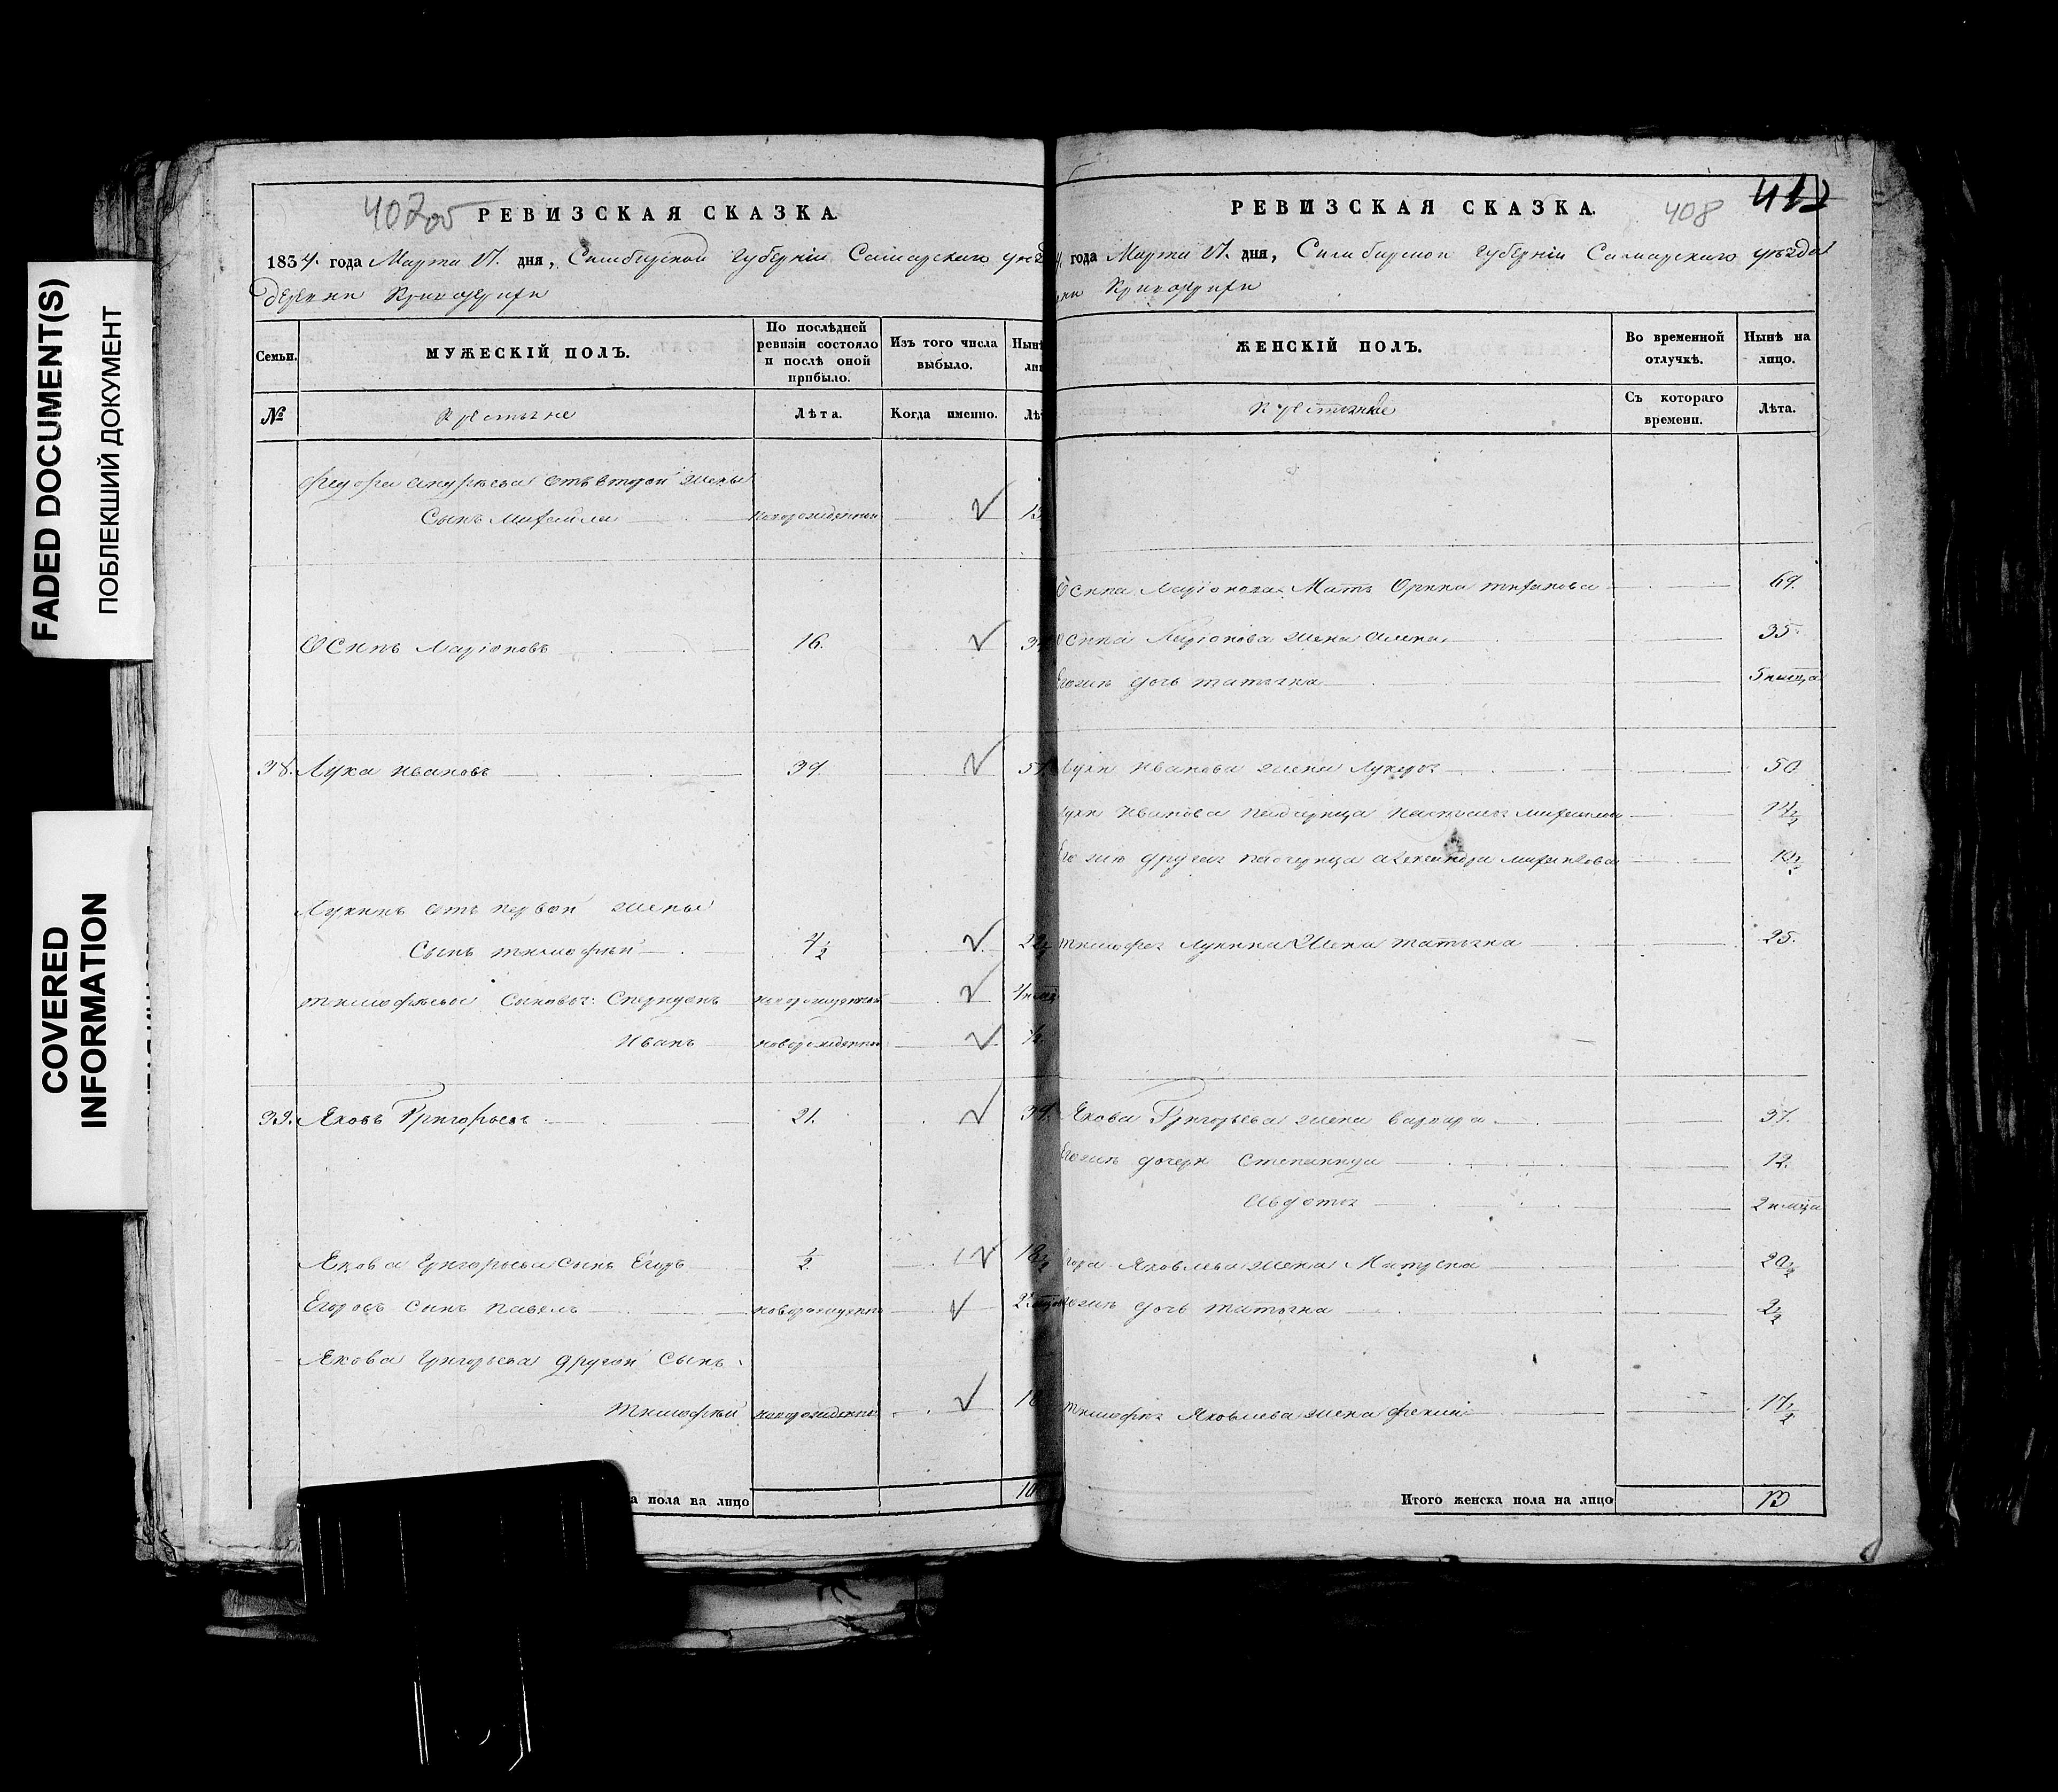 FADED DOCUMENT(S)
ПОБЛЕКШИЙ ДОКУМЕНТ
COVERED
INFORMATION
407об
РЕВИЗСКАЯ СКАЗКА.
1834. года Марта 17. дня, Симбирской губернiи Самарского
деревни
Семьи.
МУЖЕСКIЙ ПОЛЪ.
По послѣдней
ревизiи состояло
и послѣ оной
прибыло.
Изъ того числа
выбыло.
№
Крестьяне
Лѣта.
Когда именно.
Федора Андреева отъ второй жены
Сынъ Михайла новорожденный
Осипъ Ларiоновъ 16.
38. Лука Ивановъ 39
Лукинъ отъ первой жены
Сынъ Тимофей 4 1/2
Тимофеевы Сыновья: новорожденный
Иванъ новорожденный
39. Яковъ Григорьевъ 21.
Якова Григорьева сынъ Егоръ 1/2
Егоровъ сынъ Павелъ новорожденный
Якова Григорьева другой сынъ
Тимофей новорожденный
а пола на лицо
РЕВИЗСКАЯ СКАЗКА.
408
412
года Марта 17. дня, Симбирской губернiи Самарского уѣзда
ЖЕНСКIЙ ПОЛЪ.
Во временной
отлучкѣ.
Нынѣ на
лицо.
Крестьянке
Съ котораго
времени.
Лѣта.
Осипа Ларiонова Мать Орина 69.
Осипа Ларiонова жена Алена 35.
Егожъ дочь Татьяна
Луки Иванова жена Лукерья 50
Луки Иванова падчерица Настасья Михайлова
другая падчерица Александра
Тимофея Лукина Жена Татьяна 25.
Якова Григорьева жена Варвара 37.
Егожъ дочери Степанида 12.
Авдотья
Егора Яковлева жена Матрена 20 1/2
Егожъ дочь Татьяна 2 1/2
Тимофея Яковлева жена 17 1/2
Итого женска пола на лицо 13